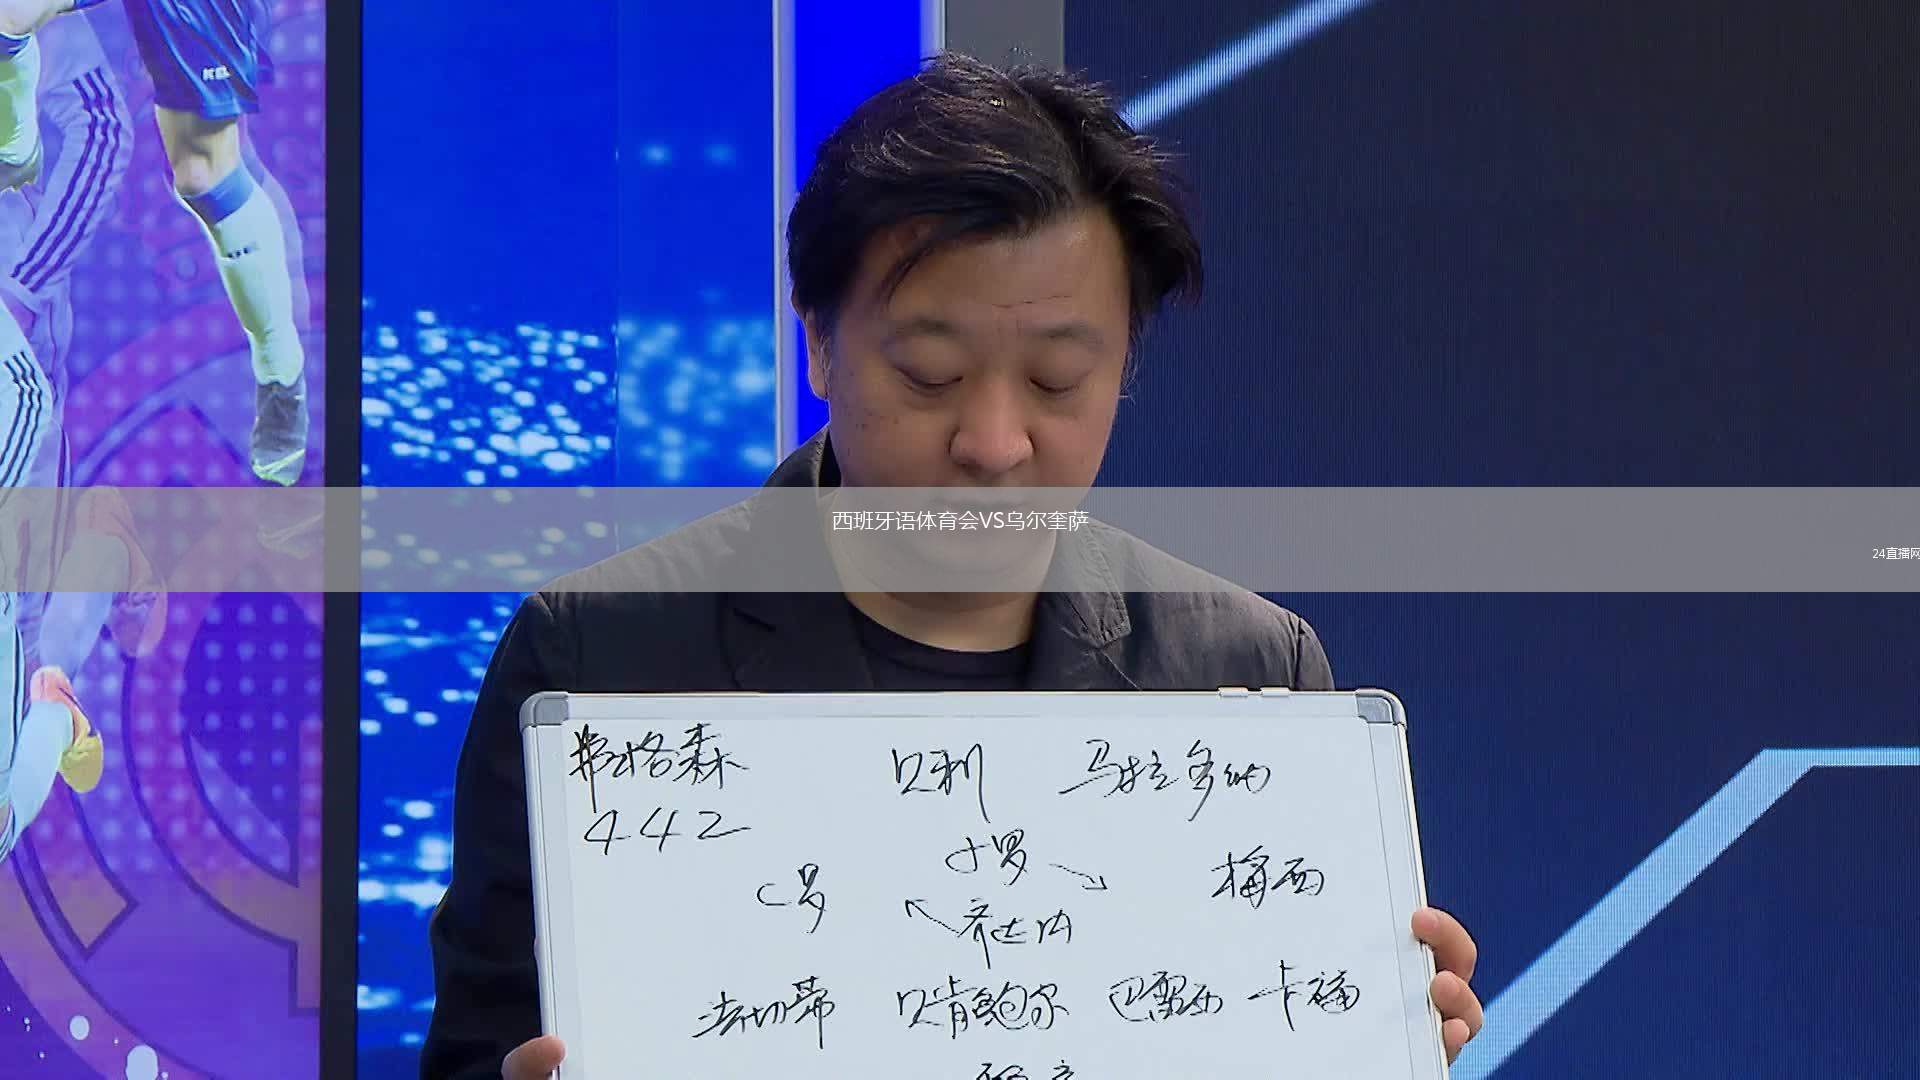 西班牙语体育会VS乌尔奎萨
24直播网
弗格森 贝利 马拉多纳
442
小罗
C罗 梅西
齐达内
法切蒂 贝肯鲍尔 巴雷西 卡福